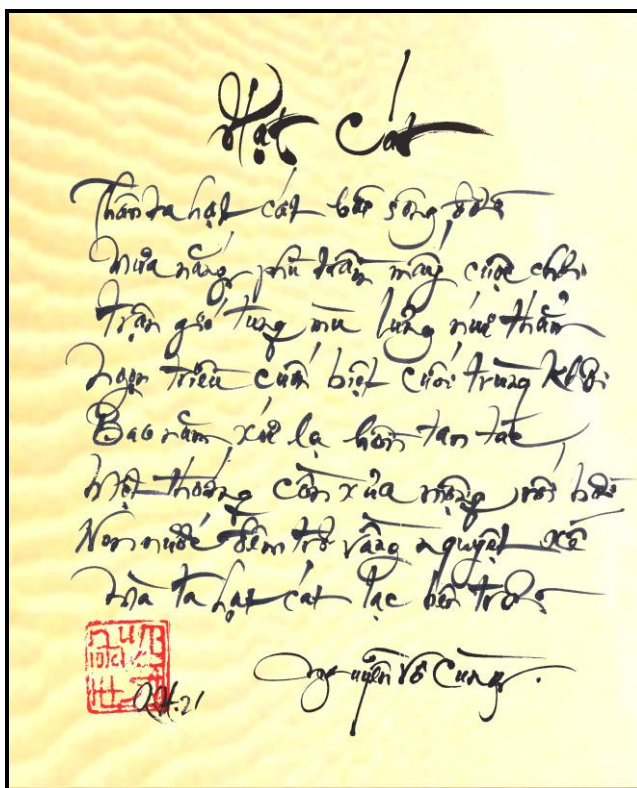 Hạt Cát
Thân ta hạt cát bãi sông đời
Mưa nắng phù trầm mấy cuộc chơi
Trận gió tung mù lũng núi thẳm
Ngọn triều cuốn biệt cuối trùng khơi
Bao năm xứ lạ hồn tan tác
Một thoáng cồn xưa mộng rối bời
Non nước đêm trơ vầng nguyệt xế
Mà ta hạt cát lạc bên trời
Nguyễn Vô Cùng.